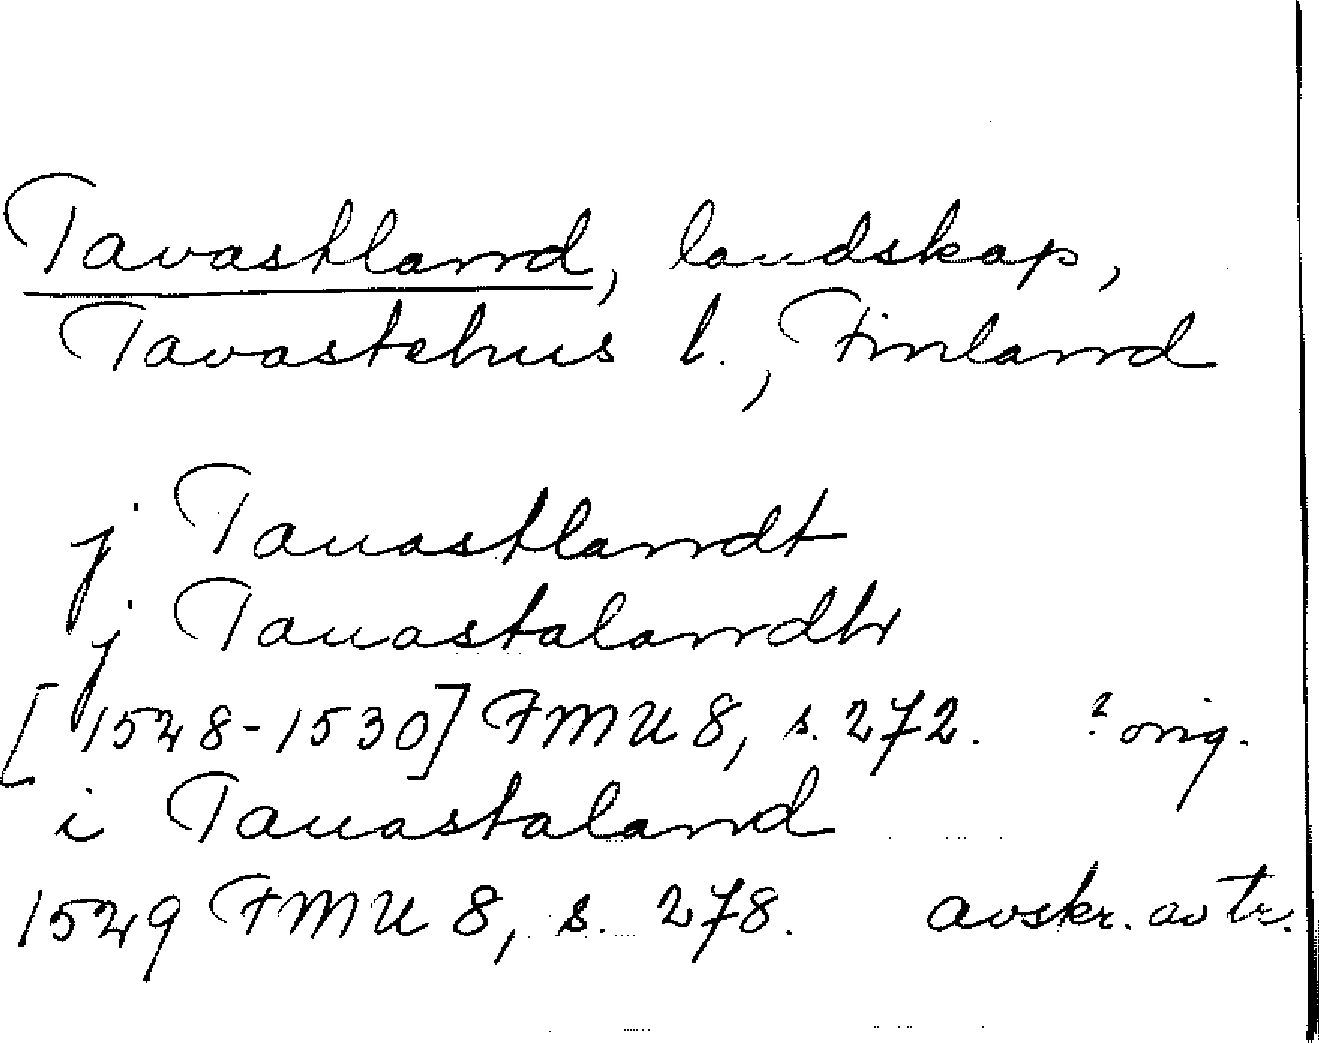 Tavastland, landskap,
Tavastehus l., Finland
j Tauastlandt
j Tauastalandh
[1528-1530] FMU 8, s. 272. ? orig.
i Tauastaland
1529 FMU 8, s. 278. avskr. av tr.